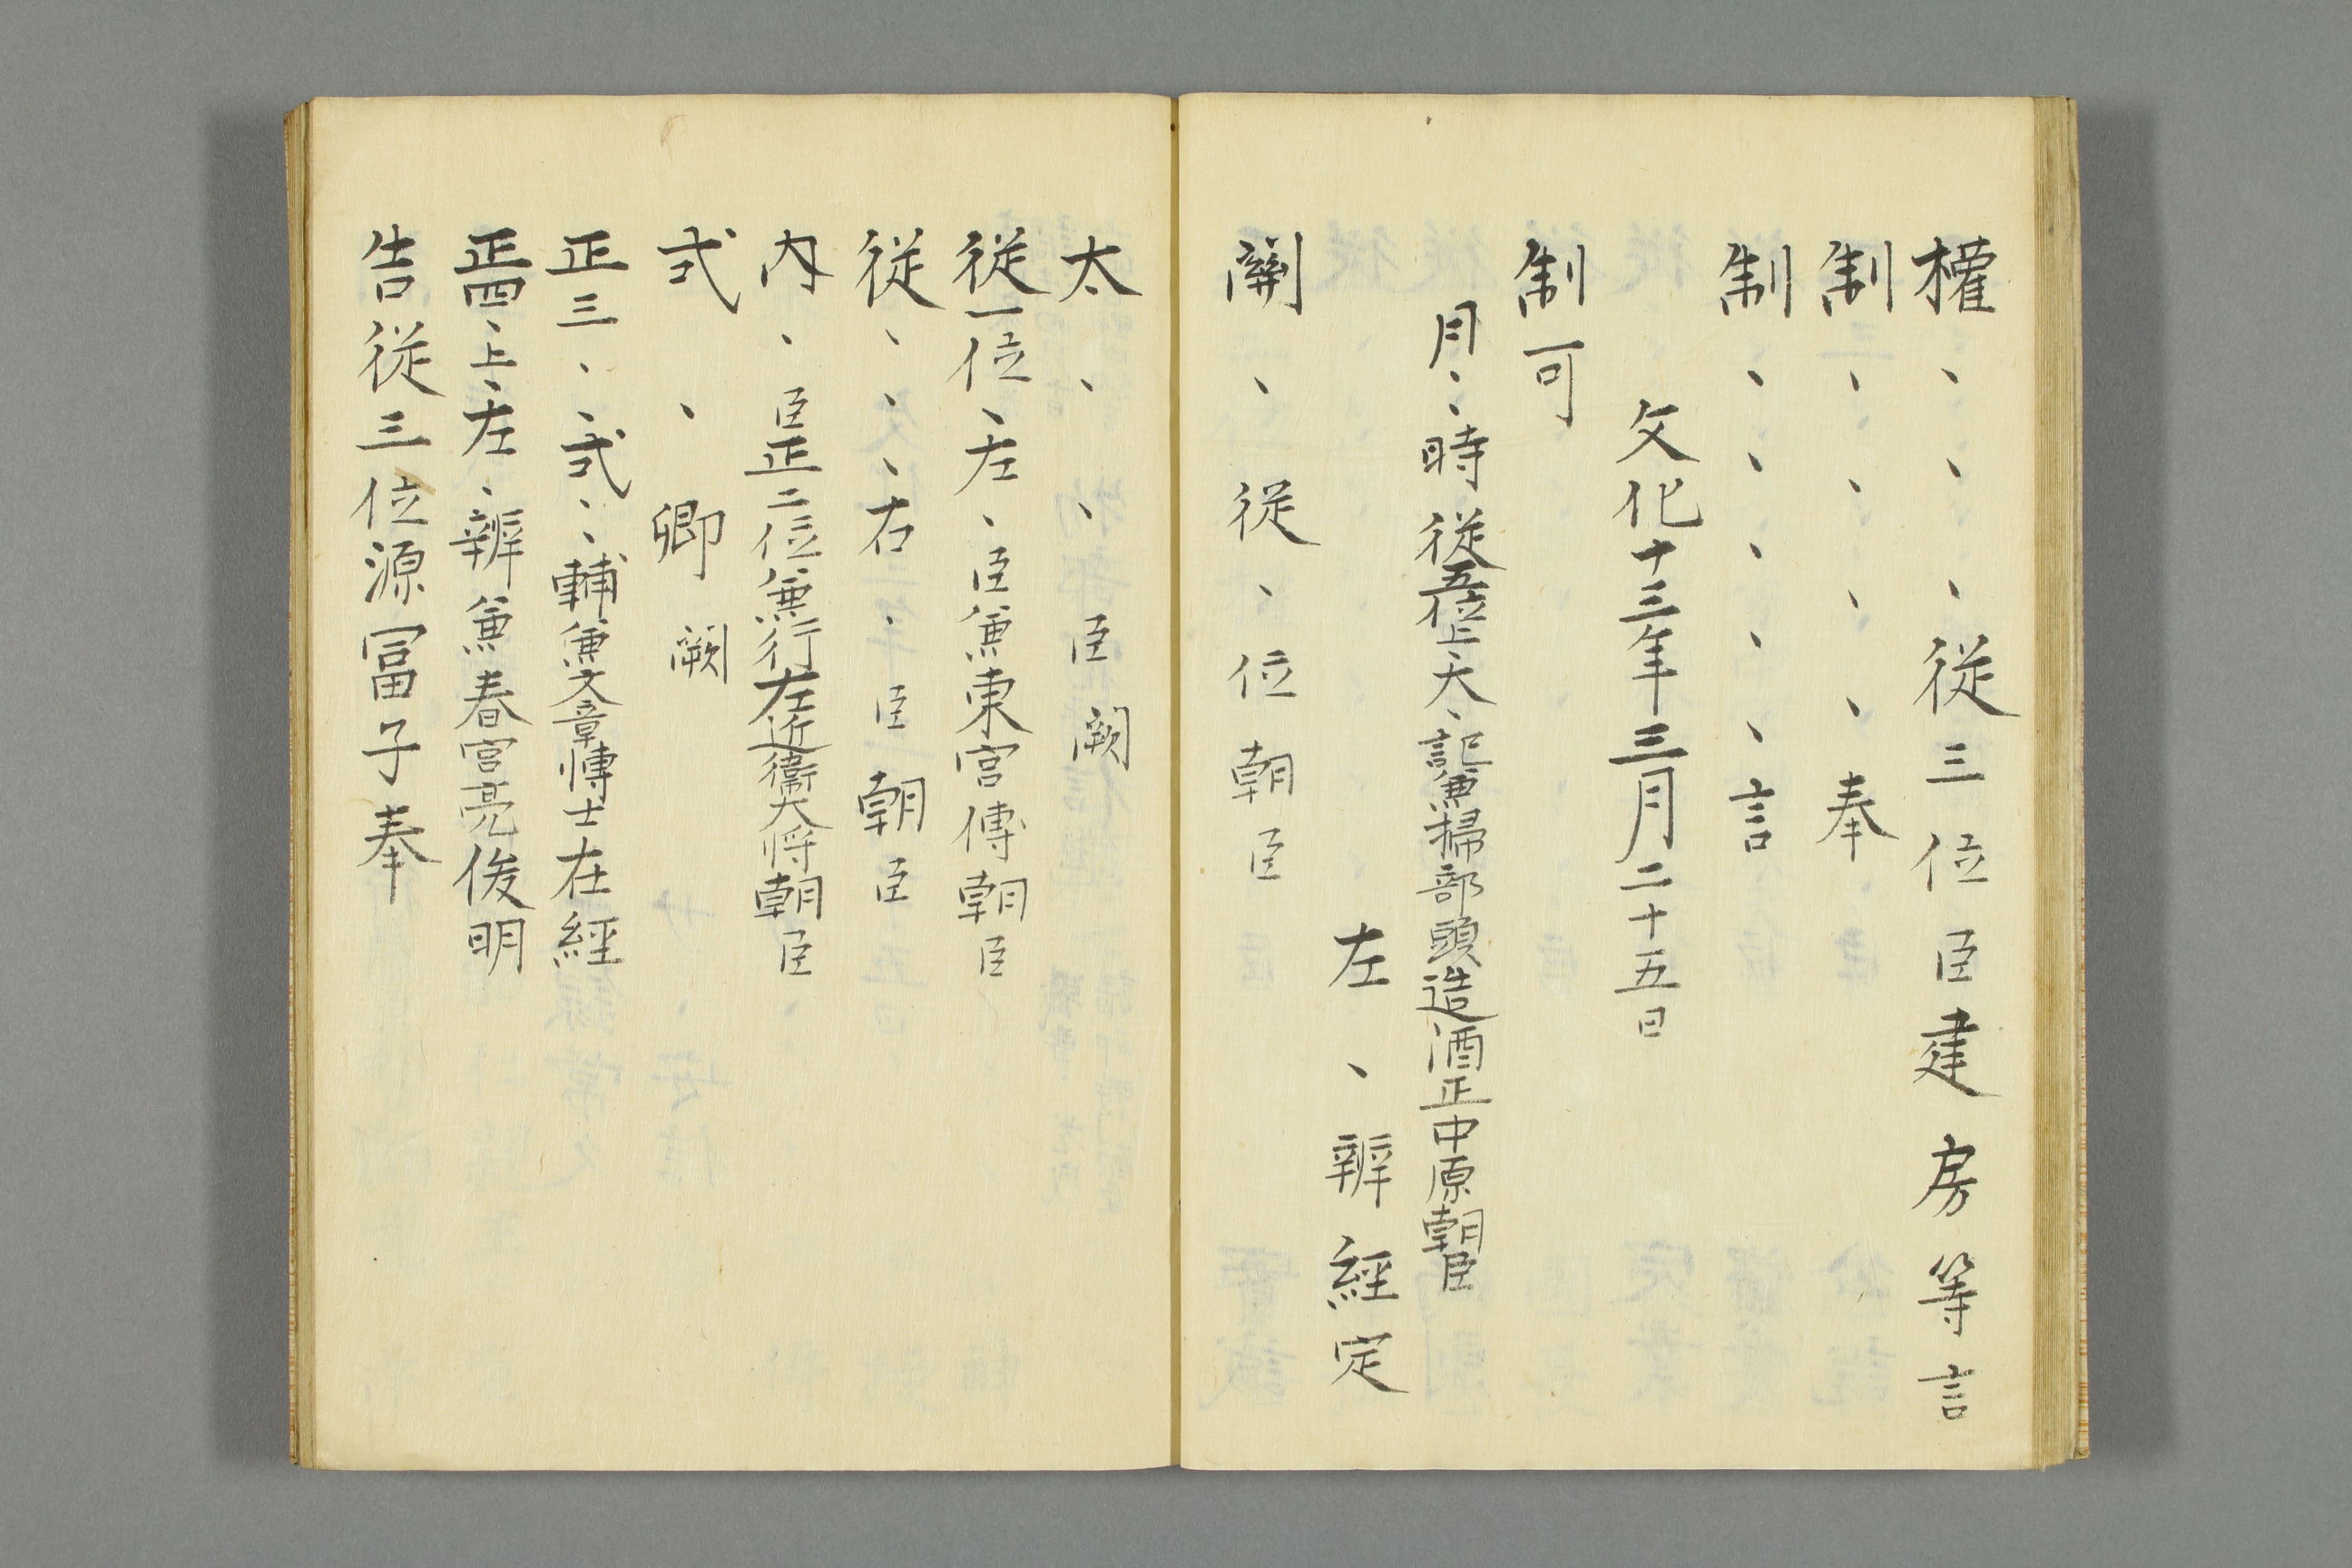 權、、、従三位臣建房等言
制、、、、奉
制、、、、、言
文化十三年三月二十五日
制可
月、、時従五位上大、記兼掃部頭造酒正中原朝臣
左、辨經定
關、従、位朝臣
太、、臣闕
従一位、左、臣兼東宮傅朝臣
従、、、右、臣朝臣
内、臣正二位兼行左近衛大将朝臣
式、卿闕
正三、、式、、輔兼文章博士在經
正四、上、左、辨兼春宮亮俊明
告従三位源冨子奉